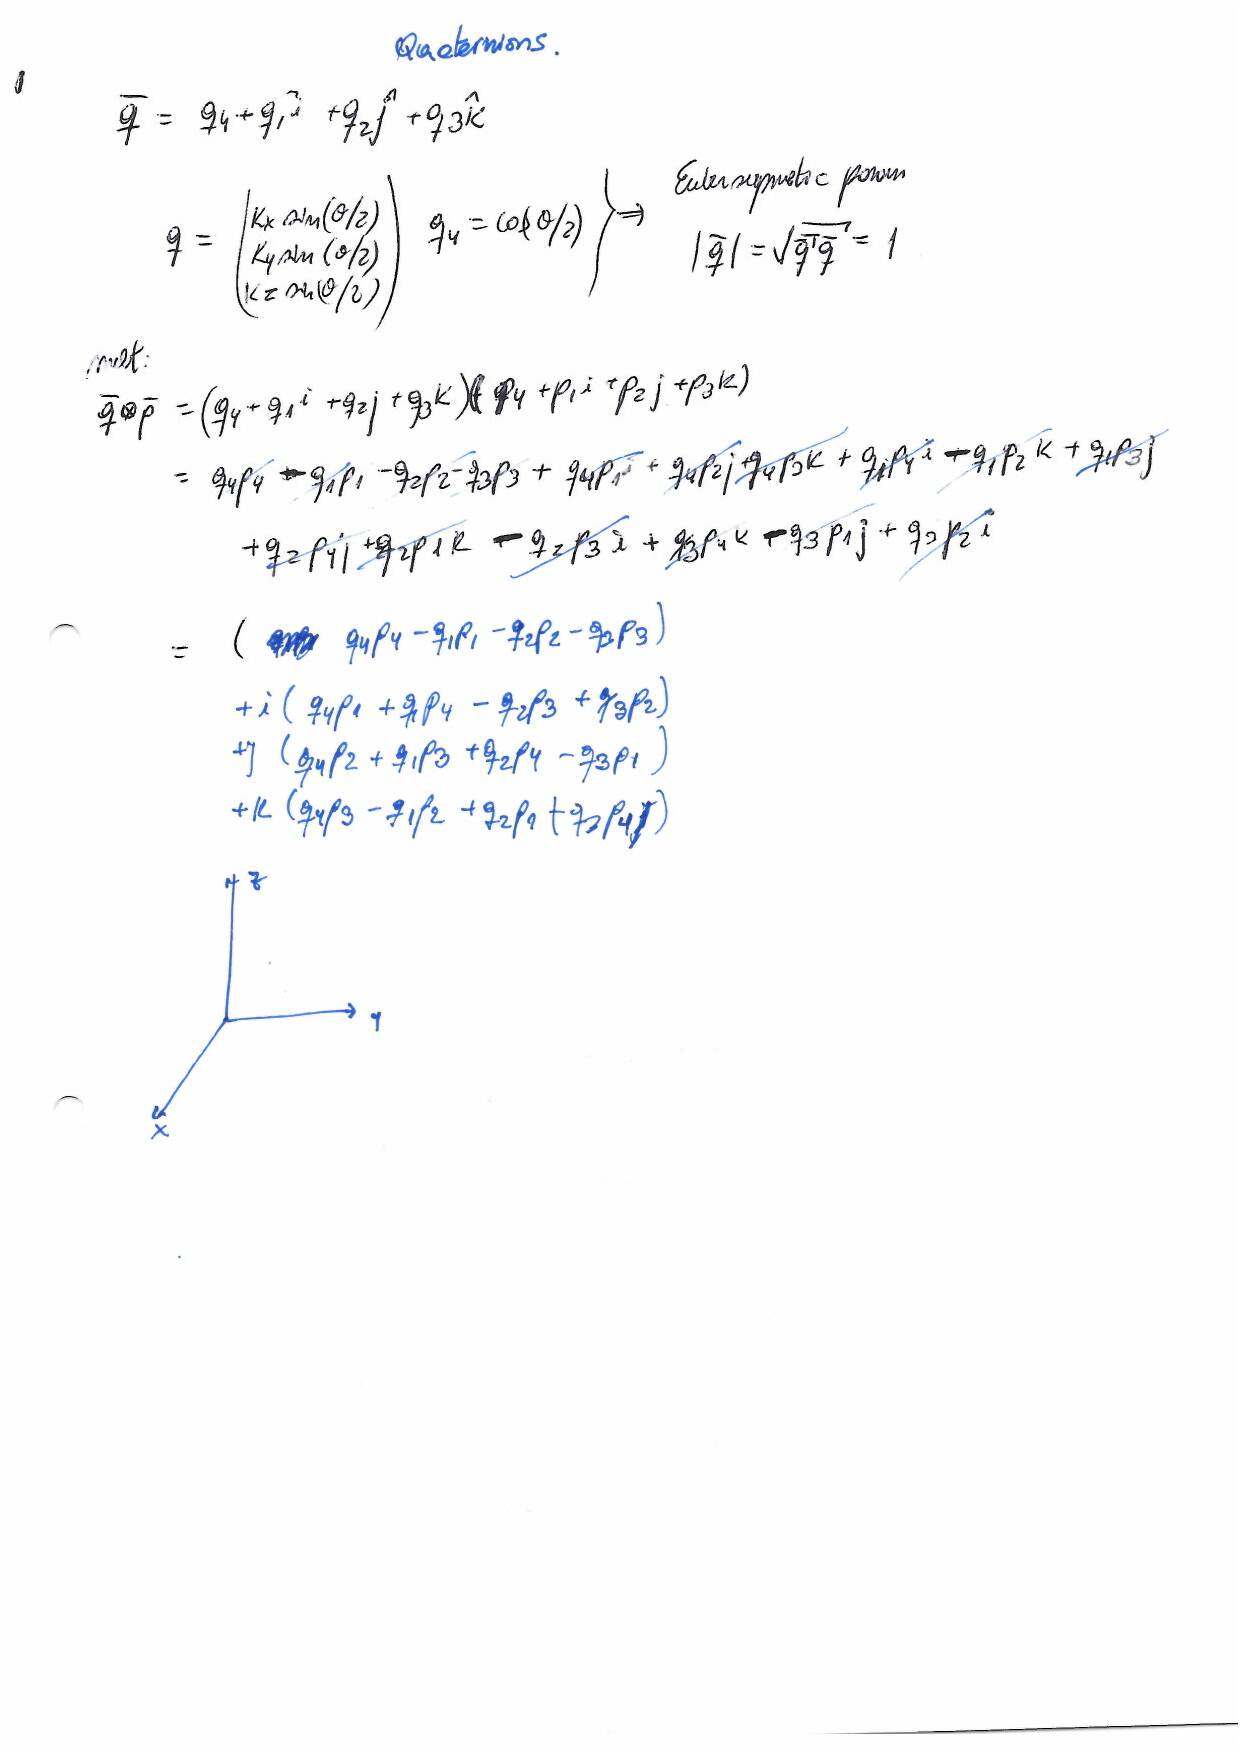 Quaternions.
1
q̄ = q4 + q1 î + q2 ĵ + q3 k̂
Euler symmetric param
q = ( kx sin(θ/2) ky sin(θ/2) kz sin(θ/2) ) q4 = cos(θ/2) } ⇒ |q̄| = √(q̄ᵀq̄) = 1
mult:
q̄ ⊗ p̄ = (q4 + q1 i + q2 j + q3 k)(p4 + p1 i + p2 j + p3 k)
= q4p4 - q1p1 - q2p2 - q3p3 + q4p1 i + q4p2 j + q4p3 k + q1p4 i - q1p2 k + q1p3 j
+ q2p4 j + q2p1 k - q2p3 i + q3p4 k - q3p1 j + q3p2 i
= ( q4p4 - q1p1 - q2p2 - q3p3)
+ i ( q4p1 + q1p4 - q2p3 + q3p2)
+ j (q4p2 + q1p3 + q2p4 - q3p1)
+ k (q4p3 - q1p2 + q2p1 + q3p4)
z
y
x